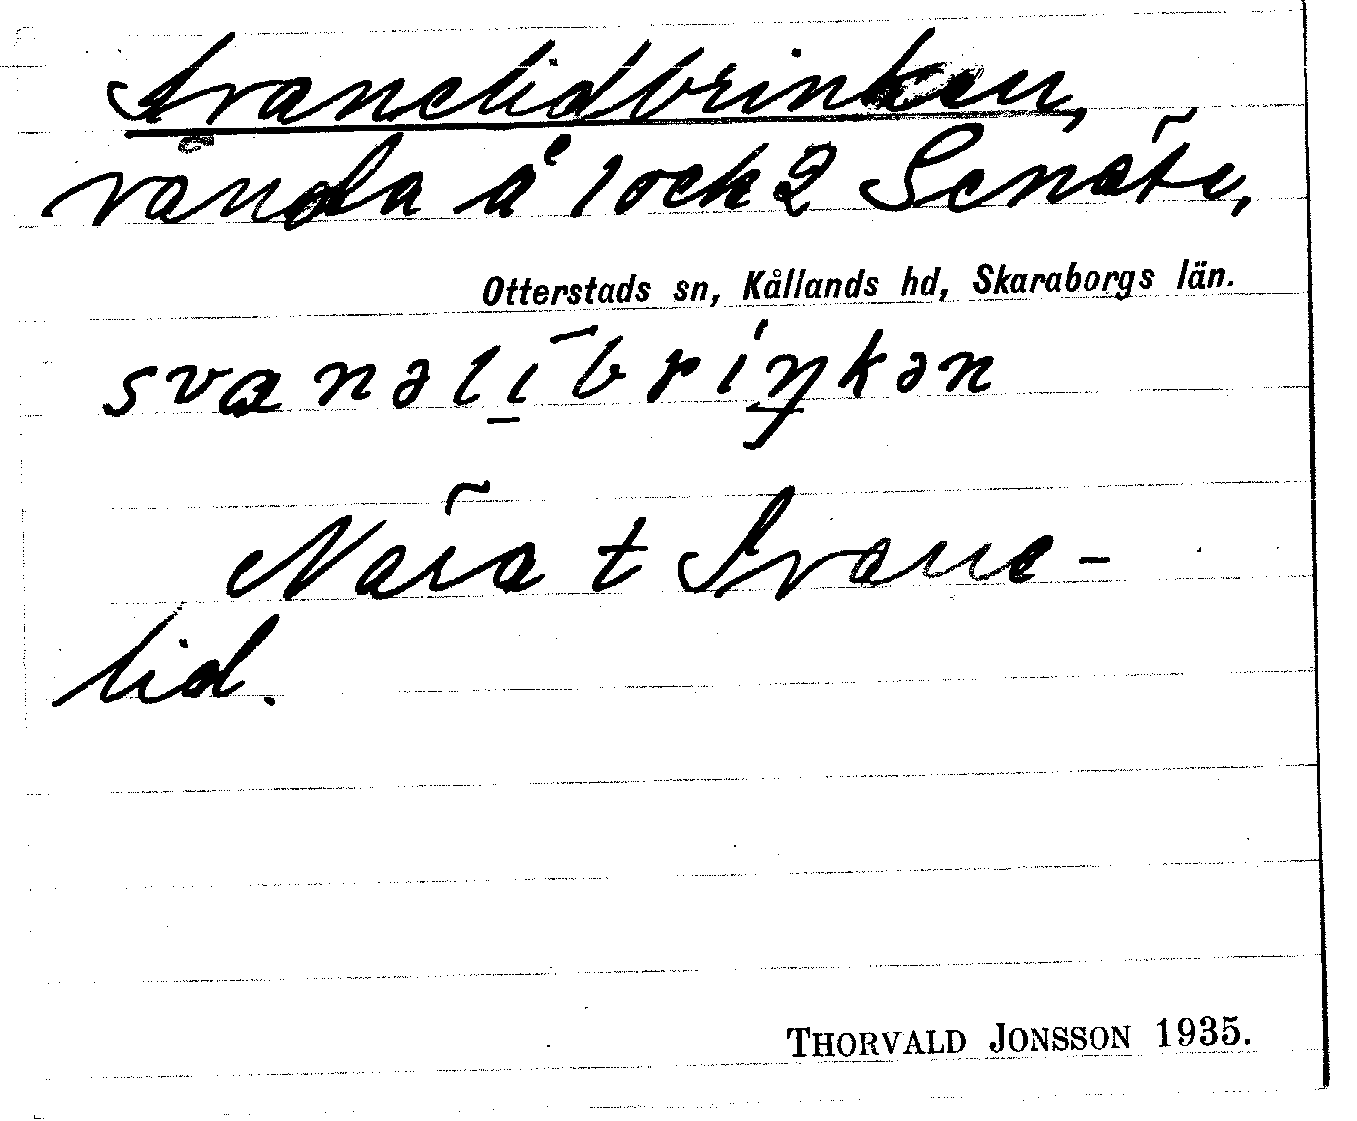 Svanelidbrinken,
vända å 1 och 2 Senäte,
Otterstads sn, Kållands hd, Skaraborgs län.
svanəlībriŋkən
Nära t Svane-
lid.
THORVALD JONSSON 1935.